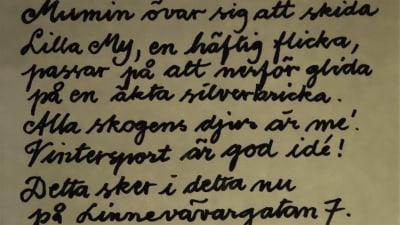 Mumin övar sig att skida
Lilla My, en häftig flicka,
passar på att nerför glida
på en äkta silverbricka.
Alla skogens djur är me'.
Vintersport är god idé!
Detta sker i detta nu
på Linnevävargatan 7.